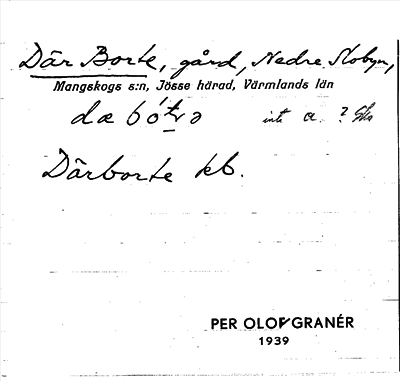 Där Borte, gård, Nedre Slobyn,
Mangskogs s:n, Jösse härad, Värmlands län
dæ bó̱tṛə inte a ?
Därborte kb.
PER OLOF GRANÉR
1939